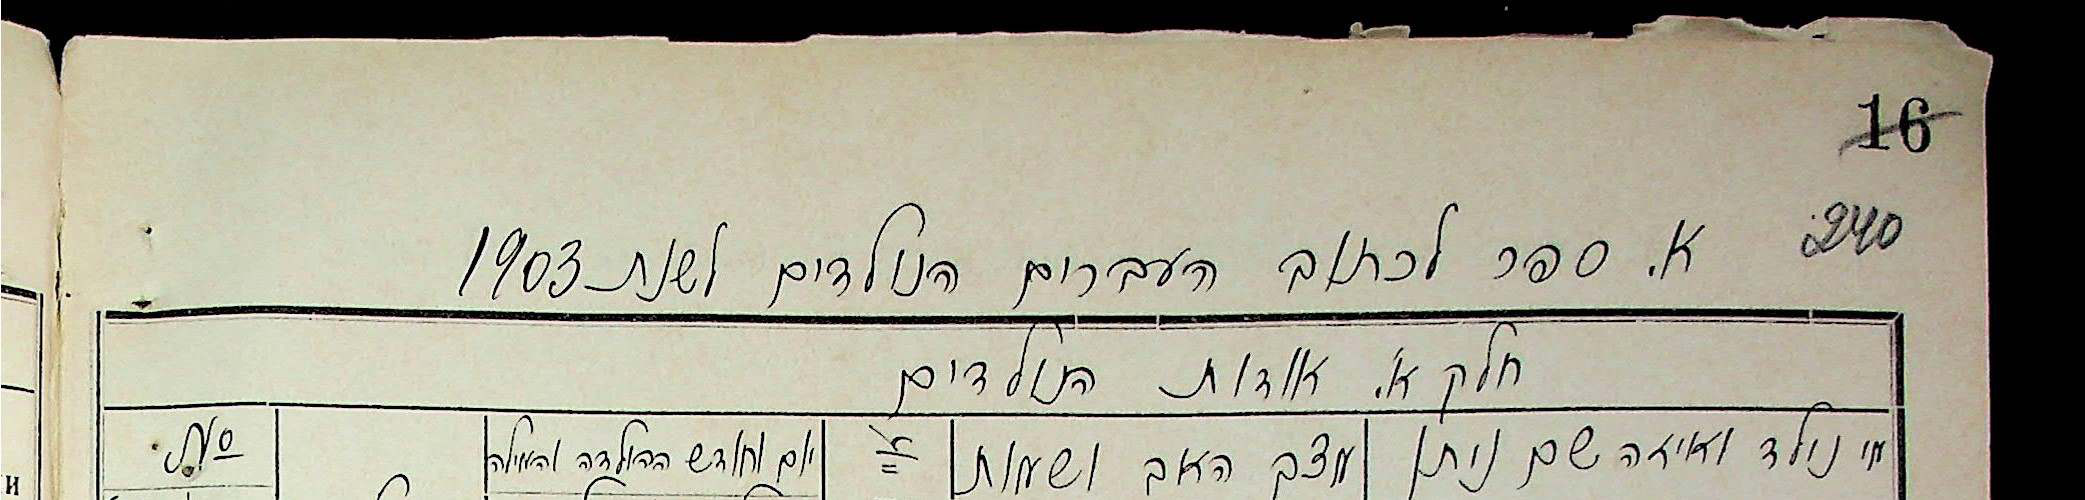 16
240
א. ספר לכתוב העברים הנולדים לשנת 1903
חלק א. אודות הנולדים
מי נולד ואיזה שם ניתן
מצב האב ושמות
יום וחודש ההולדה והמילה
№
и